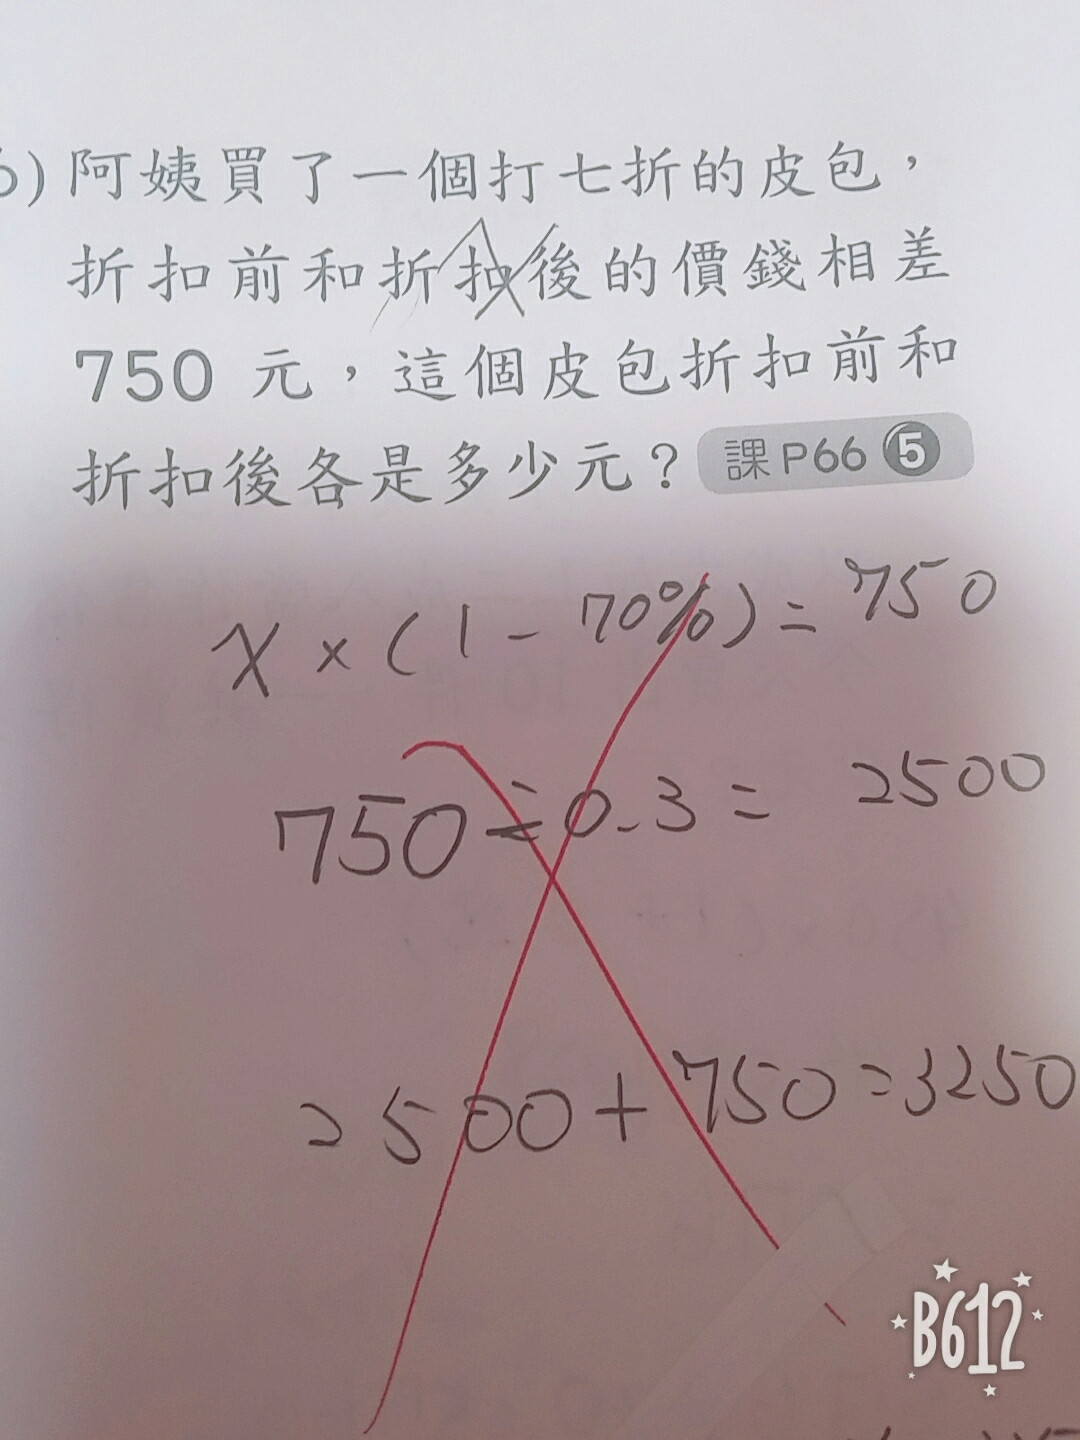 6) 阿姨買了一個打七折的皮包，
折扣前和折扣後的價錢相差
750 元，這個皮包折扣前和
折扣後各是多少元？ 課 P66 5
x × ( 1 - 70% ) = 750
750 ÷ 0.3 = 2500
2500 + 750 = 3250
B612